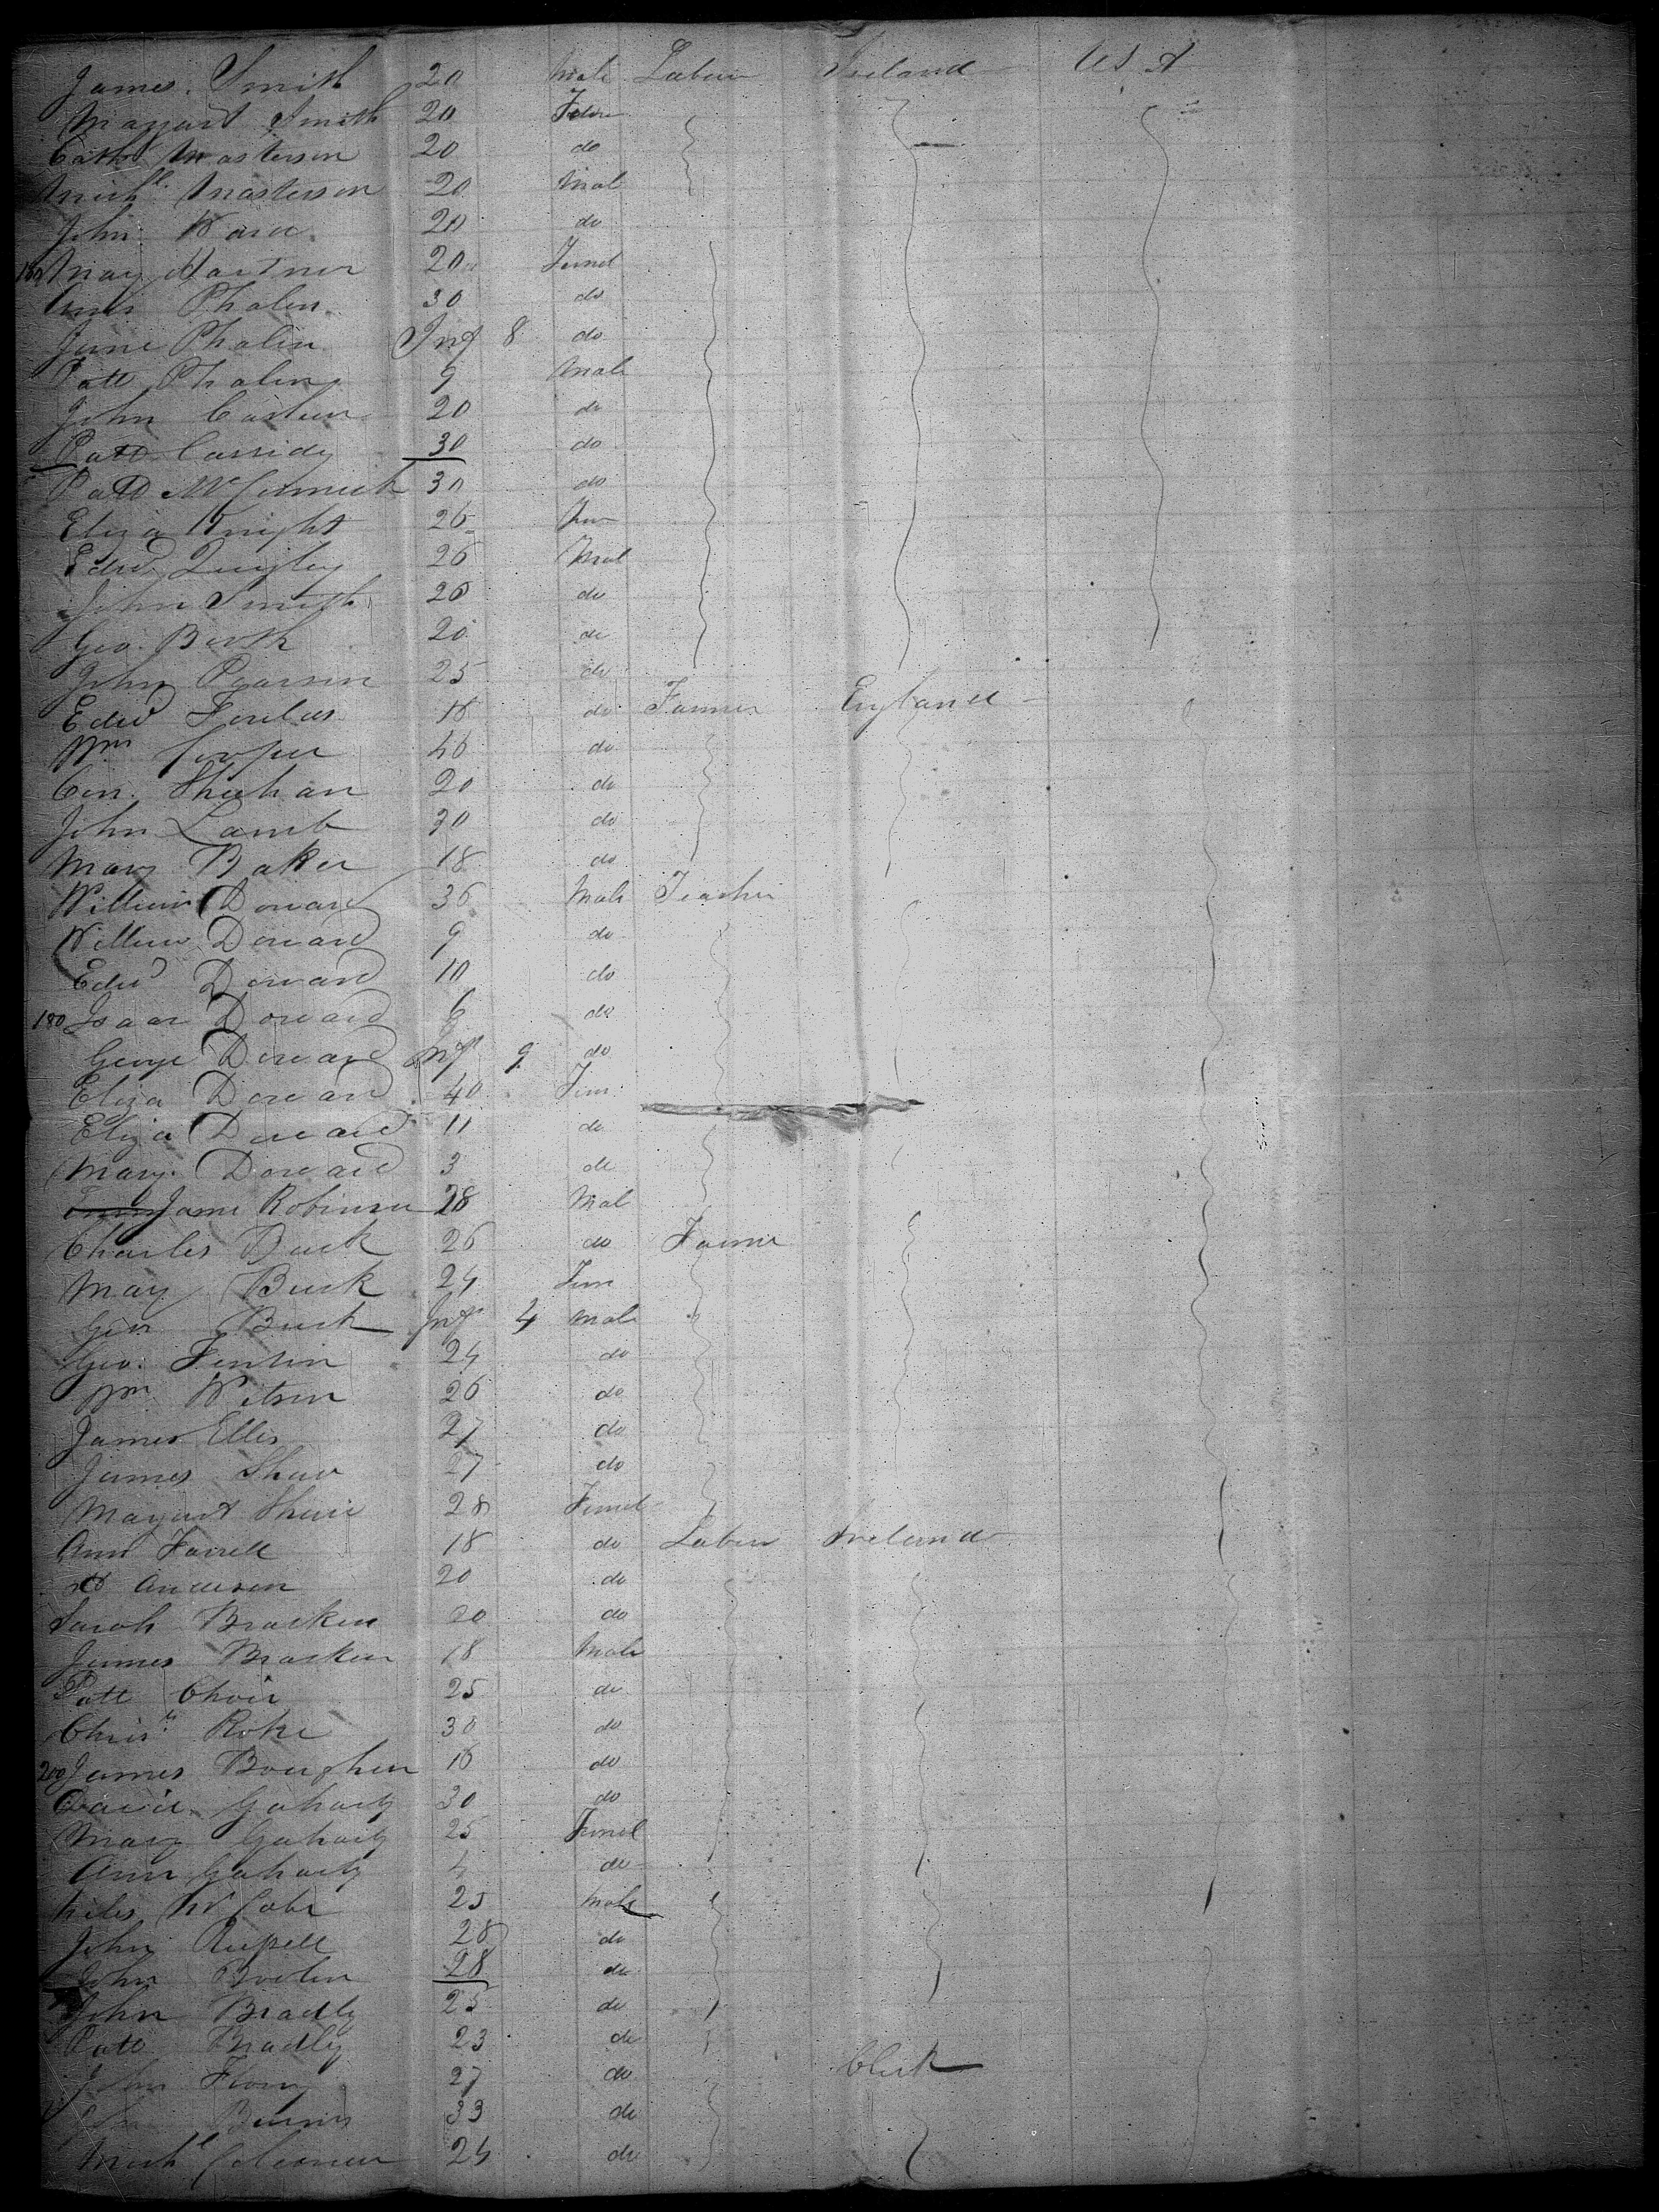 James Smith 20 Male Labour Ireland USA
Margart Smith 20
Cath Masterson 20 do
Mich'l Masterson 20 Mal
John Ward 20 do
160 Mary 20 Femel
Ann Phalen 30 do
Jane Phalen Inf 8 do
Patt Phalen 9 Male
John 20 do
Patt Cassidy 30 do
Patt McCormick 30 do
Eliza Knight 26 Fem
Edwd Quigley 26 Mal
John Smith 26 do
Geo. 20 do
John Pearson 25 do
Edwd 18 do Farmer England
Wm Cooper 46 do
Con. Shehan 20 do
John Lamb 30 do
Mary Baker 18 do
William Doward 36 Male Teacher
William Doward 9 do
Edwd Doward 10 do
180 Isaac Doward 6 do
George Doward Inf 9 do
Eliza Doward 40 Fem
Eliza Doward 11 do
Mary Doward 3 do
Jame Robinson 28 Mal
Charles Buck 26 do Farmer
Mary Buck 24 Fem
Geo Buck Inf 4 Male
Geo. Fenton 24 do
Wm Watson 26 do
James Ellis 27 do
James Shaw 27 do
Margart Shaw 28 Femel
Ann Farrell 18 do Labour Ireland
Anderson 20 do
Sarah Bracken 20 do
James Bracken 18 Male
Patt 25 do
Chris 30 do
200 James Boughen 18 do
David Gaharty 30 do
Mary Gaharty 25 Femel
Ann Gaharty 4 do
McCabe 25 Male
John Russell 28 do
John 28 do
John Bradly 25 do
Patt Bradly 23 do
John 27 do Clerk
Burns 33 do
Mich'l 24 do